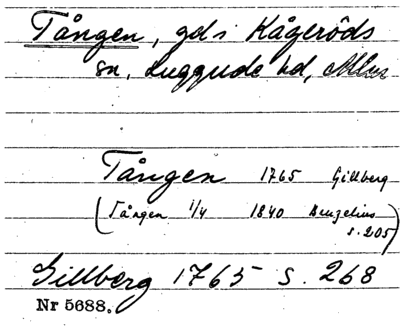 Tången, gd i Kågeröds
sn, Luggude hd, Mlm
Tången 1765 Gillberg
(Tången 1/4 1840 Benzelius
s. 205)
Gillberg 1765 s. 268
Nr 5688.